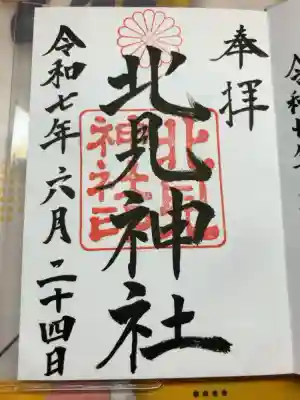 奉拝
北見神社
北見神社印
令和七年六月二十四日
令和七